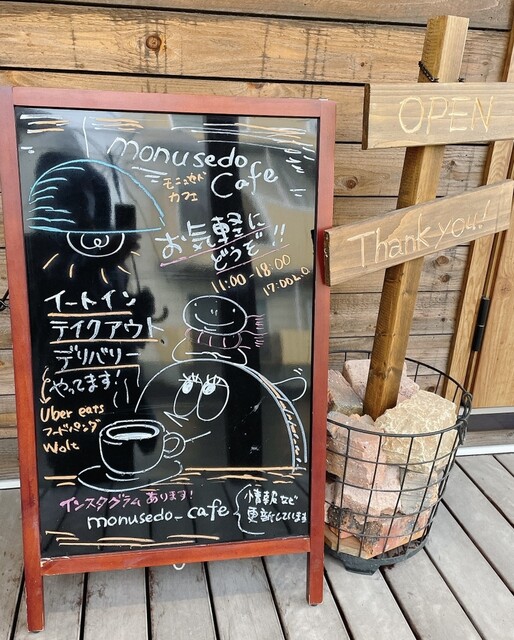 monusedo
モニュセド
カフェ
Cafe
お気軽に
どうぞ!!
11:00-18:00
17:00L.O
イートイン
テイクアウト
デリバリー
やってます!
Uber eats
フードパンダ
Wolt
インスタグラムあります!
monusedo_cafe
情報など
更新しています
OPEN
Thank you!